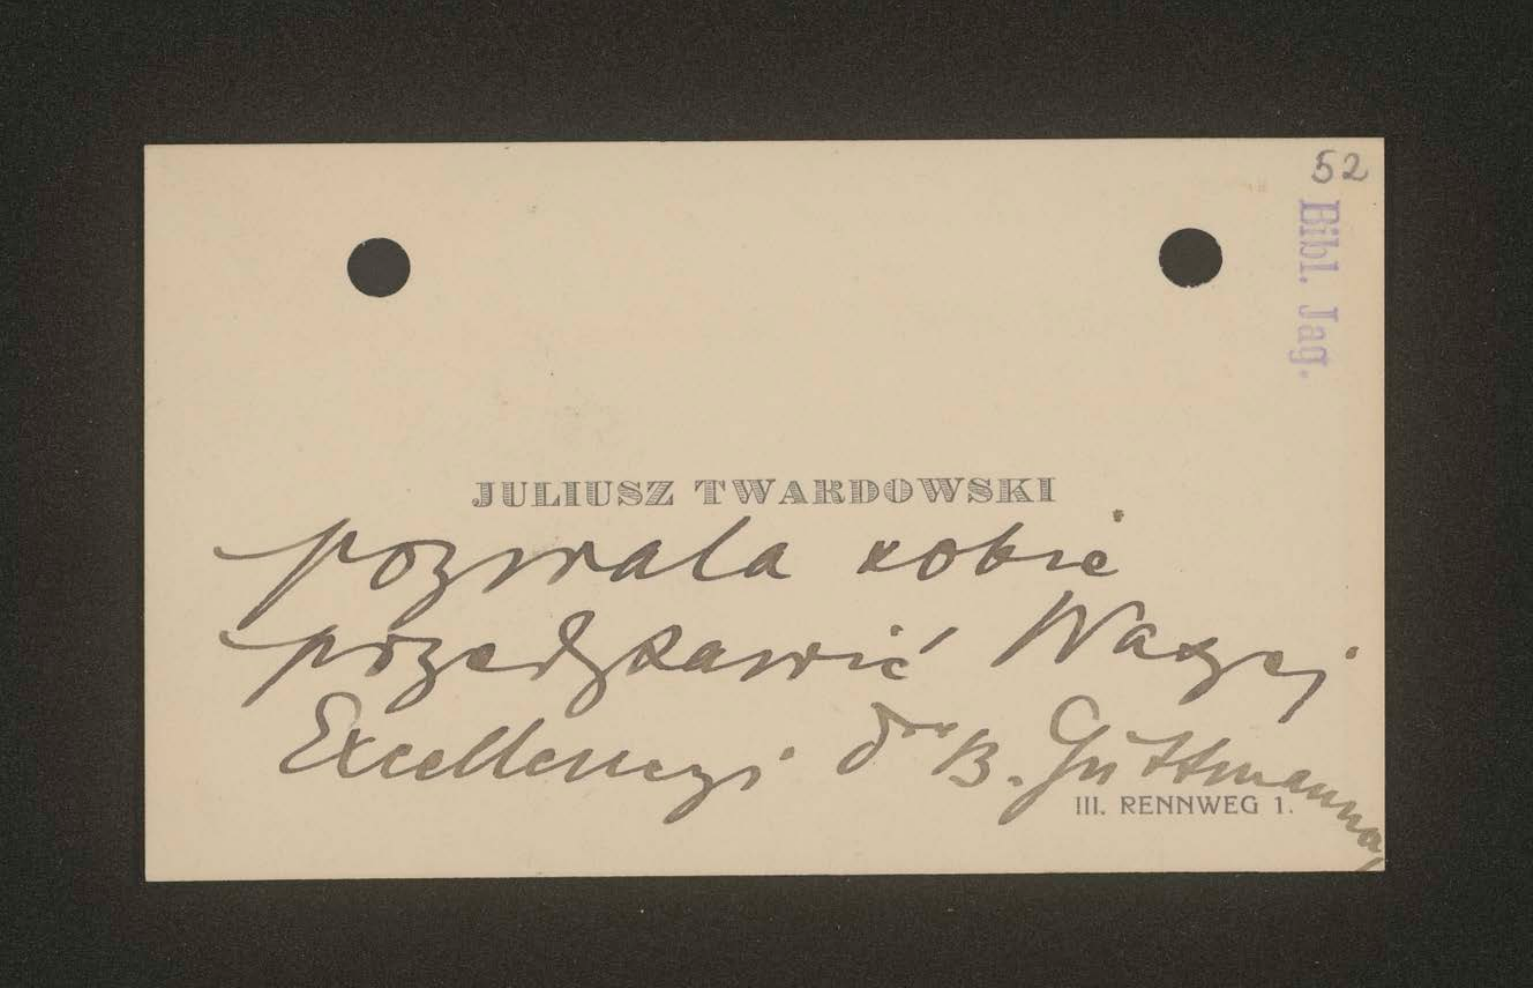 52
Bibl. Jag.
JULIUSZ TWARDOWSKI
pozwala sobie
przedstawić Waszej
Excellencyi dra B. Guttmanna,
III. RENNWEG 1.